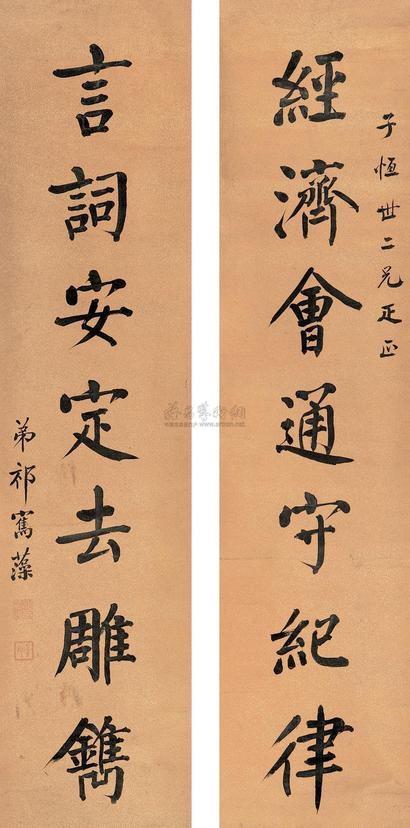 子恒世二兄疋正
經濟會通守紀律
言詞安定去雕鐫
弟祁寯藻